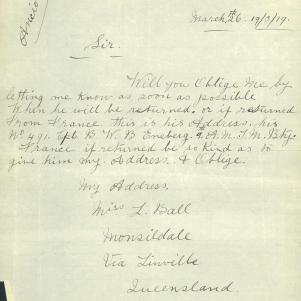 March 26. 19/3/19.
Sir.
Will you Oblige Me by
letting me know as soon as possible
When he will be returned. or if returned
from France this is his Address. his
No 491. Cpl. B W. B Eneberg. 9. A.M.T.M. Btty.
France if returned be so Kind as to
give him my. Address. & Oblige.
My Address.
Miss L. Ball
Monsildale
Via Linville
Queensland.